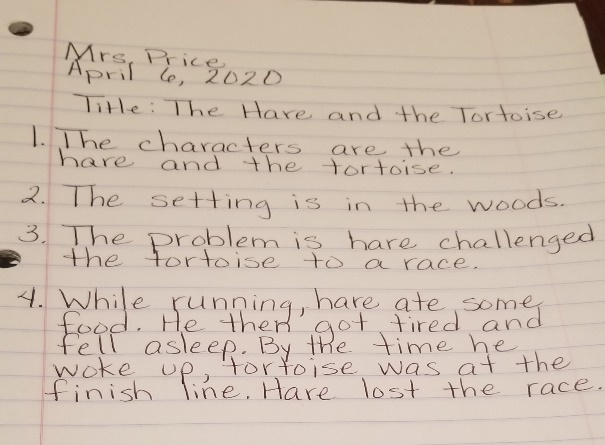 Mrs. Price
April 6, 2020
Title: The Hare and the Tortoise
1. The characters are the
hare and the tortoise.
2. The setting is in the woods.
3. The problem is hare challenged
the tortoise to a race.
4. While running, hare ate some
food. He then got tired and
fell asleep. By the time he
woke up, tortoise was at the
finish line. Hare lost the race.